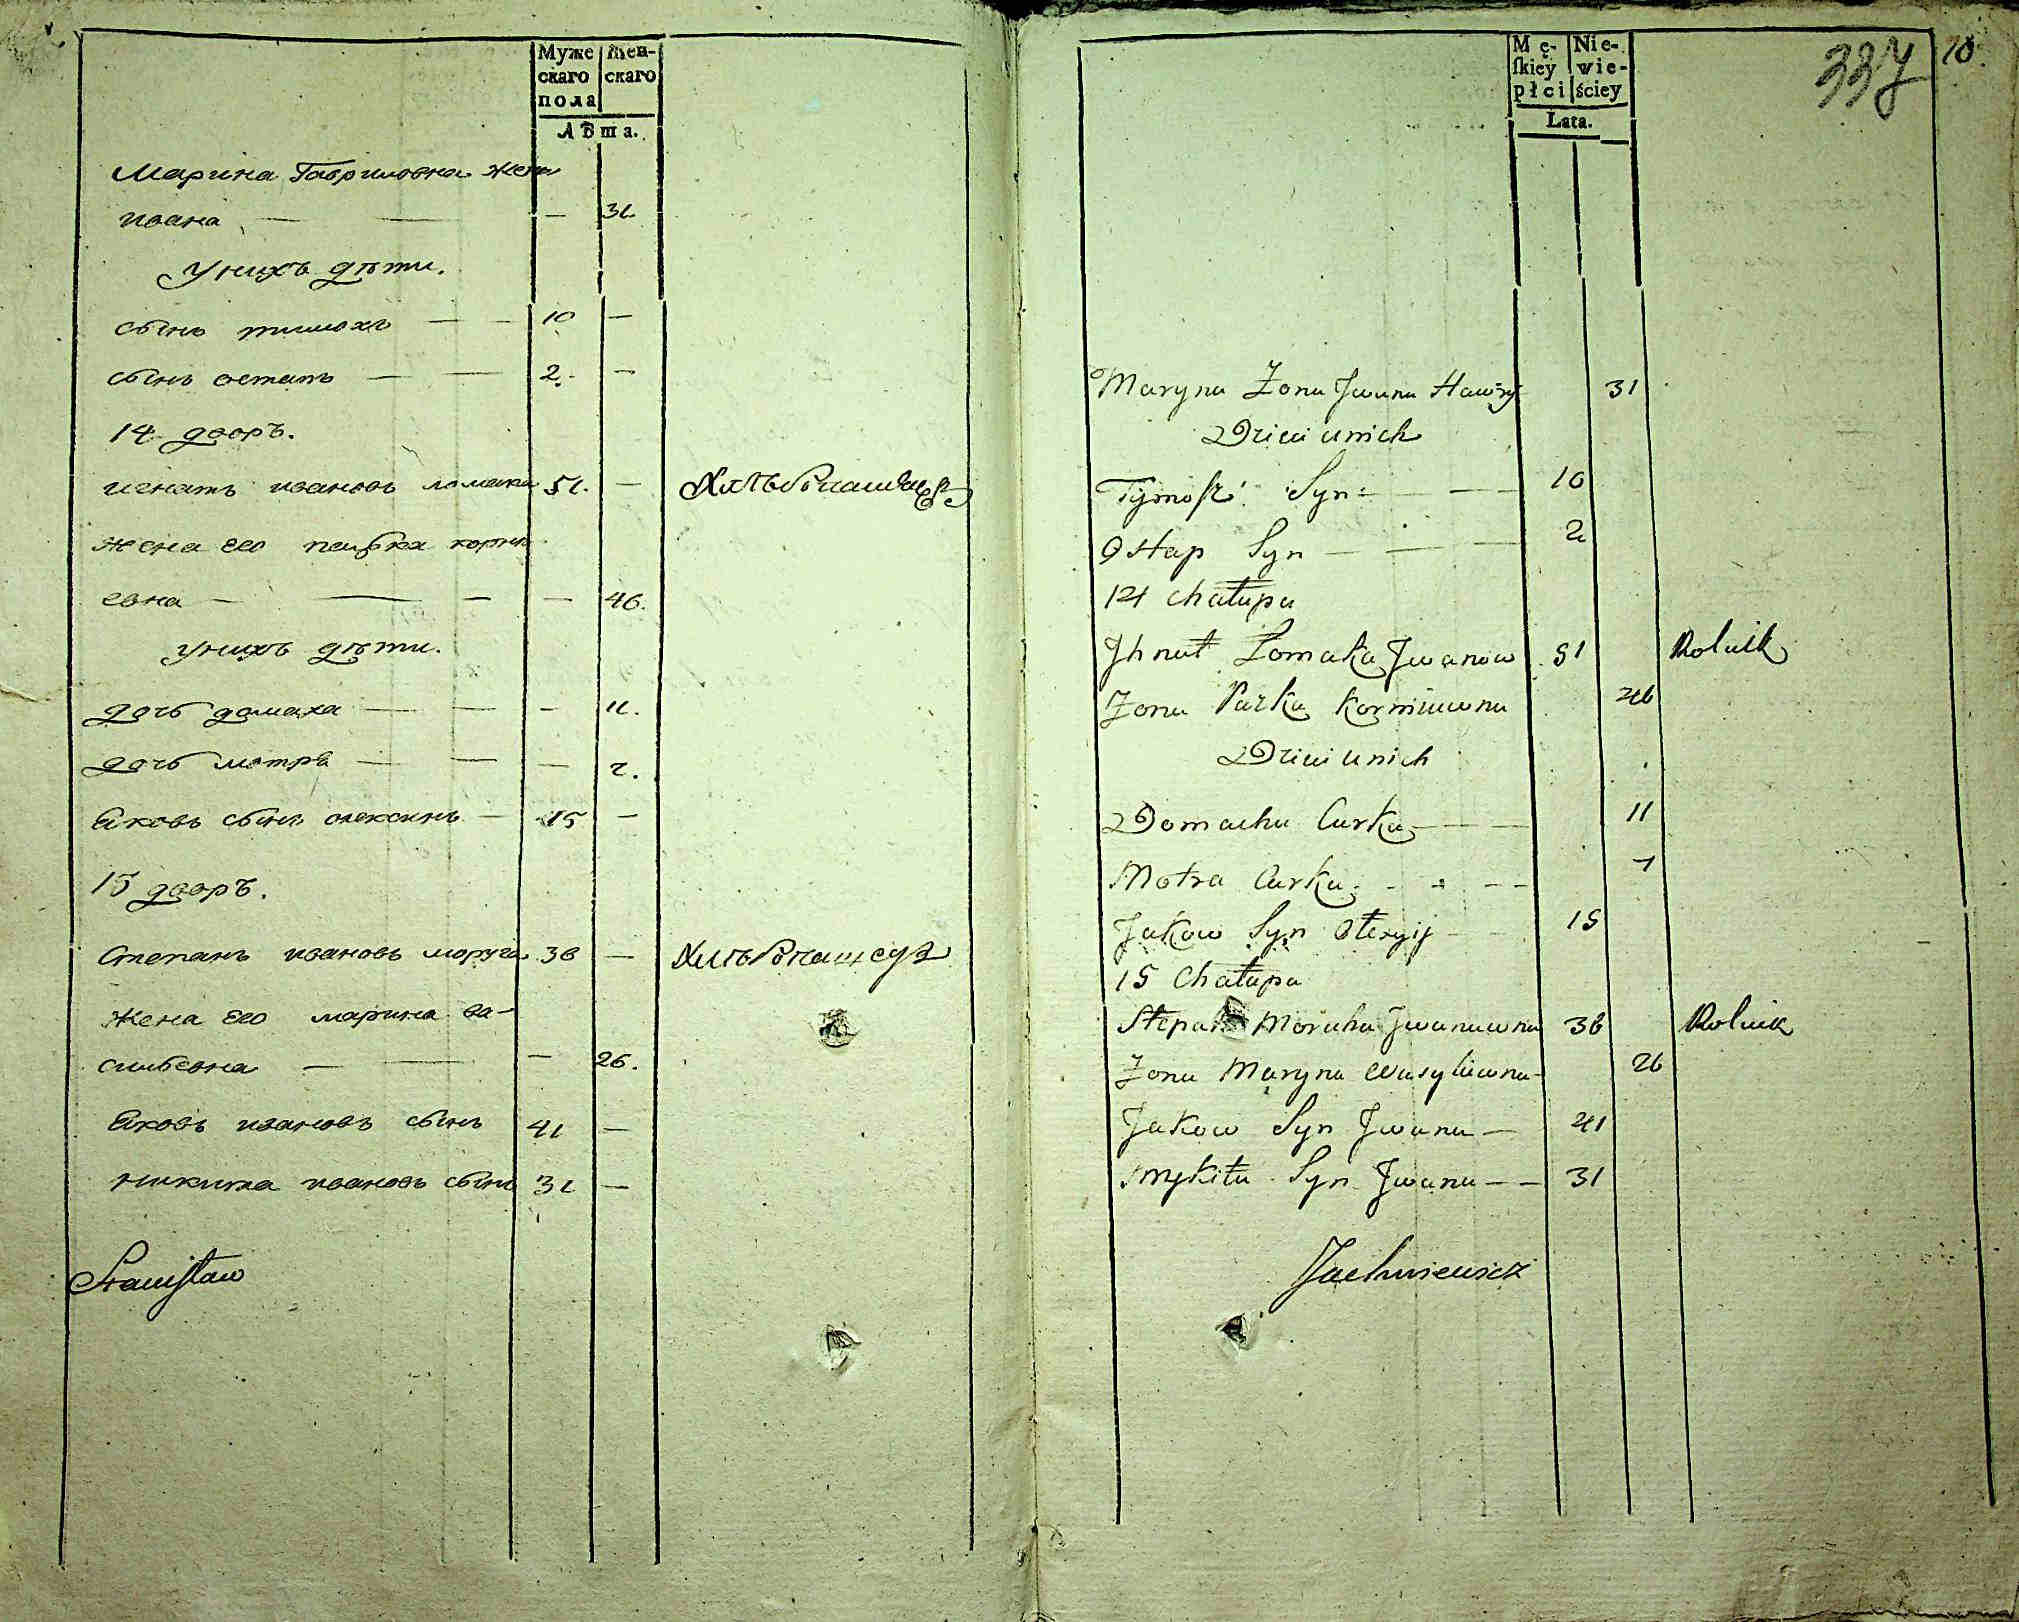 Муже
скаго
пола
Жен-
скаго
Лѣта.
Марина Гавриловна жена
ивана — — — 31
У нихъ дѣти.
сынъ тимохъ — — 10 —
сынъ остапъ — — 2. —
14 дворъ.
игнатъ ивановъ ломака 51. — Хлѣбопашецъ
жена его параска корни
евна — — — — 46.
У нихъ дѣти.
дочь домаха — — — 11.
дочь мотря — — — 7.
Яковъ сынъ олексинъ — 15 —
15 дворъ.
Степанъ ивановъ моруга 36 — Хлѣбопашецъ
жена его марина ва-
сильевна — — — 26.
Яковъ ивановъ сынъ 41 —
никита ивановъ сынъ 31 —
Stanisław
Mę-
skiey
płci
Nie-
wie-
ściey
Lata.
337
10.
Maryna Żona Jwana Hawry 31
Dzieci u nich
Tymosz Syn — — 10
Ostap Syn — — — 2
14 Chałupa
Jhnat Łomaka Jwanow 51 Rolnik
Żona Parka Korniiewna 46
Dzieci u nich
Domacha Curka — — — 11
Motra Curka — — — 7
Jakow Syn Olexyij — 15
15 Chałupa
Stepan Moruha Jwanuwna 36 Rolnik
Żona Maryna Wasyliewna — 26
Jakow Syn Jwana — 41
Mykita Syn Jwana — — 31
Jachniewicz